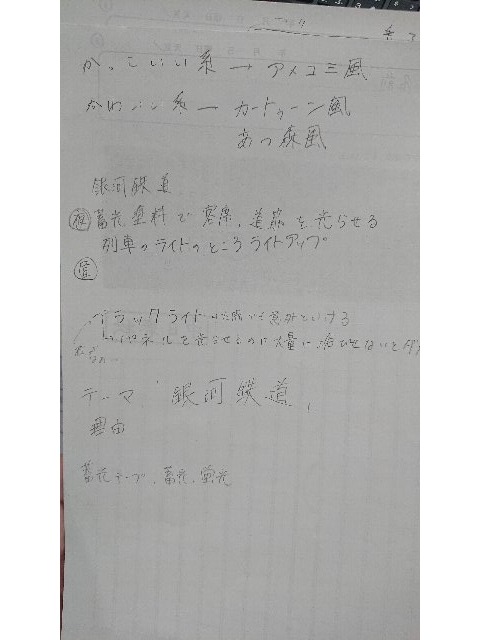 かっこいい系→アメコミ風
かわいい系→カートゥーン風
あつ森風
銀河鉄道
夜 蓄光塗料で窓際、道筋を光らせる
列車のライトのところライトアップ
昼
ブラックライトは意外といける
パネルを光らせるのに大量に浴びせないとダメ
テーマ「銀河鉄道」
理由
蓄光テープ、蓄光、蛍光